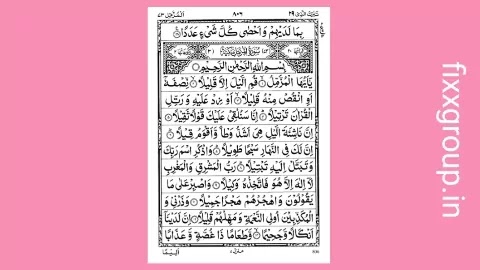 تبٰرك الذی ٢٩
المزمل ٧٣
بِمَا لَدَيْهِمْ وَاَحْصٰى كُلَّ شَيْءٍ عَدَدًا
بِسْمِ اللّٰهِ الرَّحْمٰنِ الرَّحِيْمِ
يٰٓاَيُّهَا الْمُزَّمِّلُ قُمِ الَّيْلَ اِلَّا قَلِيْلًا نِّصْفَهٗٓ
اَوِ انْقُصْ مِنْهُ قَلِيْلًا اَوْ زِدْ عَلَيْهِ وَرَتِّلِ
الْقُرْاٰنَ تَرْتِيْلًا اِنَّا سَنُلْقِيْ عَلَيْكَ قَوْلًا ثَقِيْلًا
اِنَّ نَاشِئَةَ الَّيْلِ هِيَ اَشَدُّ وَطْاً وَّاَقْوَمُ قِيْلًا
اِنَّ لَكَ فِي النَّهَارِ سَبْحًا طَوِيْلًا وَاذْكُرِ اسْمَ رَبِّكَ
وَتَبَتَّلْ اِلَيْهِ تَبْتِيْلًا رَبُّ الْمَشْرِقِ وَالْمَغْرِبِ
لَآ اِلٰهَ اِلَّا هُوَ فَاتَّخِذْهُ وَكِيْلًا وَاصْبِرْ عَلٰى مَا
يَقُوْلُوْنَ وَاهْجُرْهُمْ هَجْرًا جَمِيْلًا وَذَرْنِيْ وَ
الْمُكَذِّبِيْنَ اُولِي النَّعْمَةِ وَمَهِّلْهُمْ قَلِيْلًا اِنَّ لَدَيْنَآ
اَنْكَالًا وَّجَحِيْمًا وَّطَعَامًا ذَا غُصَّةٍ وَّعَذَابًا
اَلِيْمًا
fixxgroup.in